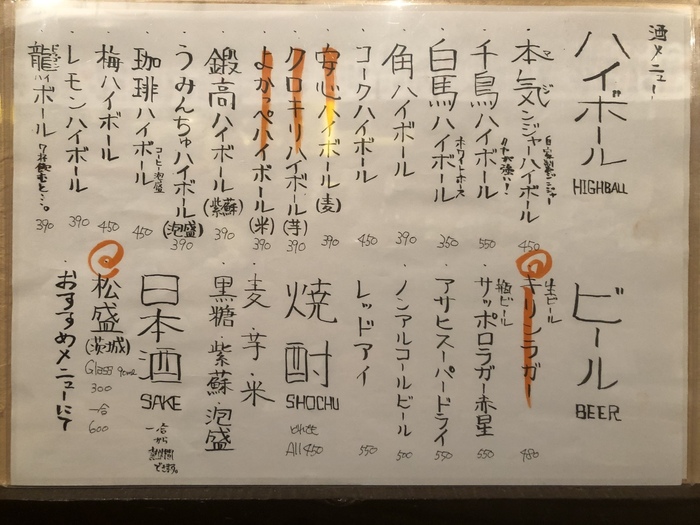 酒メニュー
ハイボール
HIGHBALL
・本気ンジャーハイボール 450
マジ
自家製ジンジャー
・千鳥ハイボール 550
クセが強い!
・白馬ハイボール 350
ホワイトホース
・角ハイボール 390
・コークハイボール 450
・安心ハイボール(麦) 390
・クロキリハイボール(芋) 390
・よかっぺハイボール(米) 390
・鍛高ハイボール(紫蘇) 390
・うみんちゅハイボール(泡盛) 390
・珈琲ハイボール 450
コーヒー泡盛
・梅ハイボール 450
・レモンハイボール 390
・龍ハイボール 390
7杯飲むと…。
ビール
BEER
・キリンラガー 480
生ビール
・サッポロラガー赤星 550
瓶ビール
・アサヒスーパードライ 550
・ノンアルコールビール 500
・レッドアイ 550
焼酎
SHOCHU
All 450
・麦・芋・米
・黒糖・紫蘇・泡盛
日本酒
SAKE
一合から
・松盛(茨城)
Glass 90ml
300
一合
600
・おすすめメニューにて